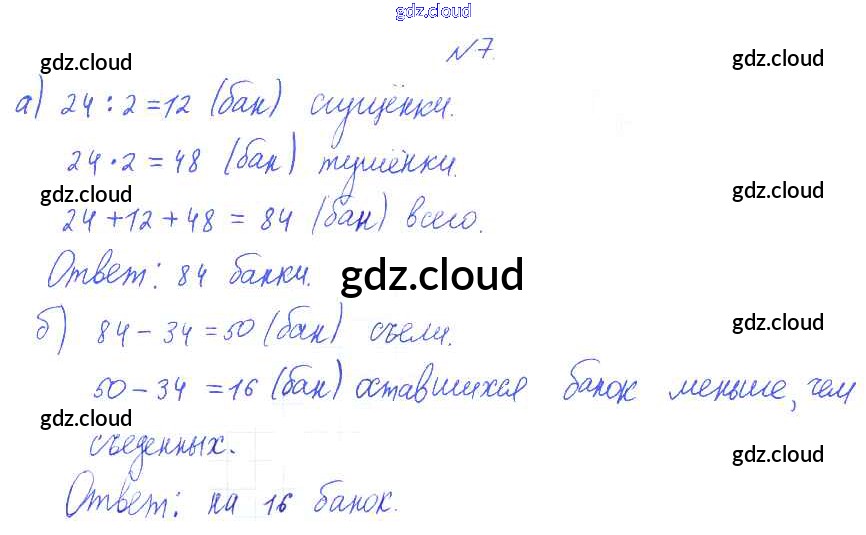 gdz.cloud
№7.
gdz.cloud gdz.cloud
а) 24 : 2 = 12 (бан) сгущёнки.
24 · 2 = 48 (бан) тушёнки.
gdz.cloud gdz.cloud
24 + 12 + 48 = 84 (бан) всего.
Ответ: 84 банки. gdz.cloud
б) 84 - 34 = 50 (бан) съели. gdz.cloud
50 - 34 = 16 (бан) оставшихся банок меньше, чем
gdz.cloud
съеденных. gdz.cloud
Ответ: на 16 банок.